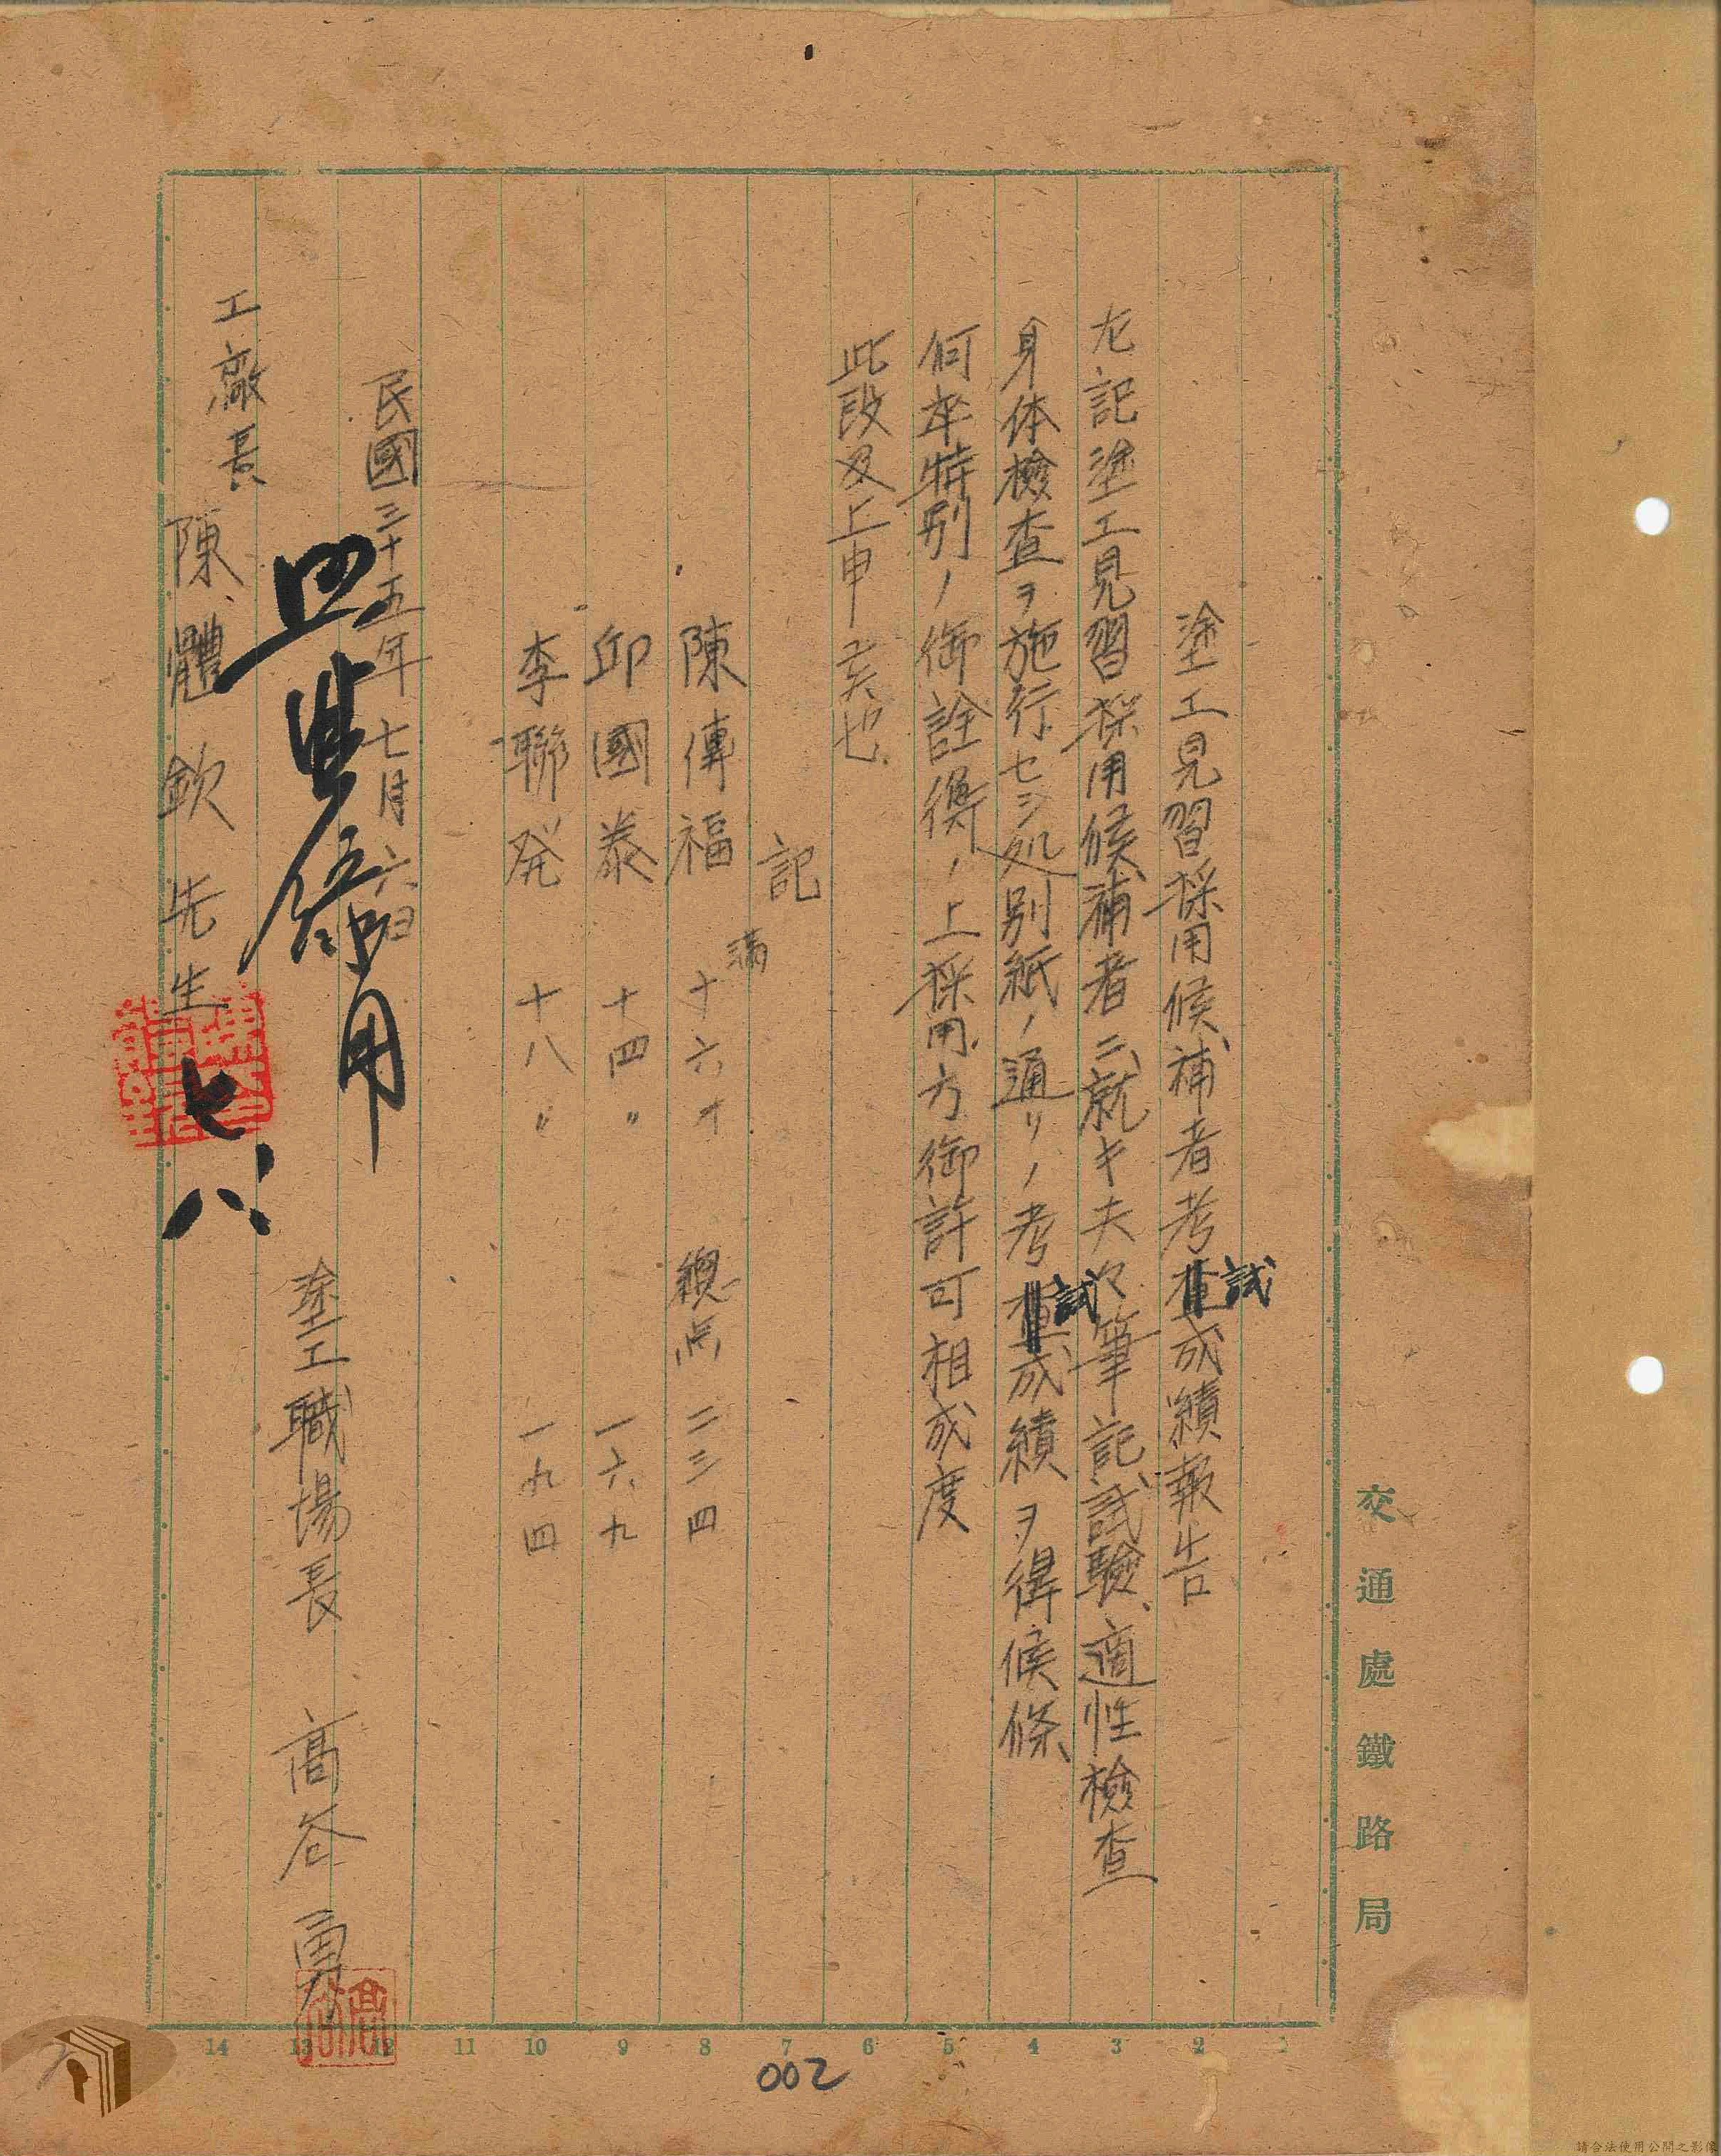 交通處鐵路局
塗工見習採用候補者考試成績報告
左記塗工見習採用候補者ニ就キ夫々筆記試驗、適性檢查
身体檢查ヲ施行セシ処別紙ノ通リノ考試成績ヲ得候條
何卒特別ノ御詮衡ノ上採用方御許可相成度
此段及上申候也
記
陳傳福 滿十六才 總点 二三四
邱國泰 十四〃 一六九
李聯発 十八〃 一九四
民國三十五年七月六日
塗工職場長 高谷勇
工廠長 陳體欽先生
七、八
1 2 3 4 5 6 7 8 9 10 11 12 13 14
002
請合法使用公開之影像